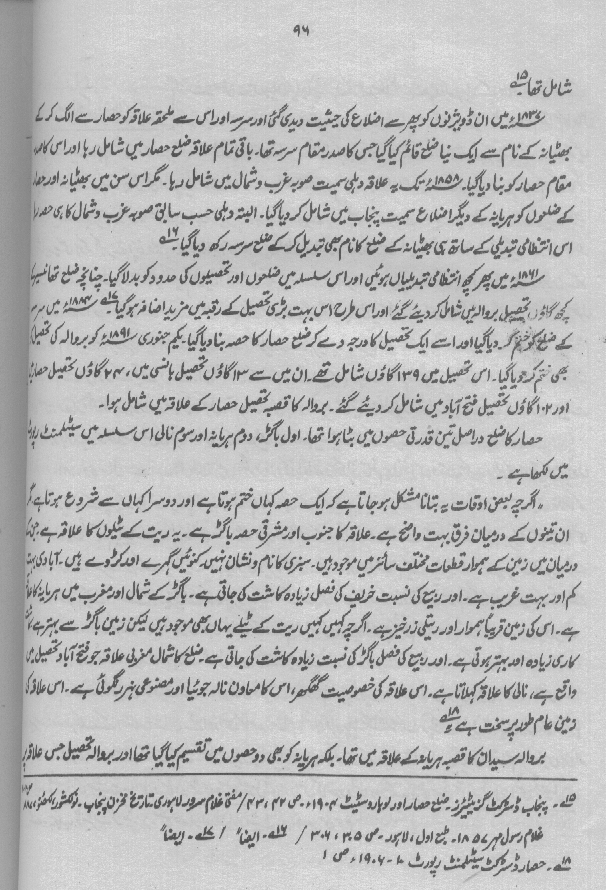 ۹۶
شامل تھا۔ ۱۵
۱۸۳۷ء میں ان ڈویژنوں کو پھر سے اضلاع کی حیثیت دیدی گئی اور سرسہ اور اس سے ملحقہ علاقہ کو حصار سے الگ کر کے
بھٹیانہ کے نام سے ایک نیا ضلع قائم کیا گیا جس کا صدر مقام سرسہ تھا۔ باقی تمام علاقہ ضلع حصار میں شامل رہا اور اس کا صدر
مقام حصار کو بنا دیا گیا۔ ۱۸۵۸ء تک یہ علاقہ دہلی سمیت صوبہ غرب و شمال میں شامل رہا۔ مگر اس سن میں بھٹیانہ اور حصار
کے ضلعوں کو ہریانہ کے دیگر اضلاع سمیت پنجاب میں شامل کر دیا گیا۔ البتہ دہلی حسب سابق صوبہ غرب و شمال کا ہی حصہ رہا
اس انتظامی تبدیلی کے ساتھ ہی بھٹیانہ کے ضلع کا نام بھی تبدیل کر کے ضلع سرسہ رکھ دیا گیا۔ ۱۶
۱۸۶۱ء میں پھر کچھ انتظامی تبدیلیاں ہوئیں اور اس سلسلہ میں ضلعوں اور تحصیلوں کی حدود کو بدلا گیا۔ چنانچہ ضلع تھانیسر کے
کچھ گاؤں تحصیل بروالہ میں شامل کر دیئے گئے اور اس طرح اس بہت بڑی تحصیل کے رقبہ میں مزید اضافہ ہو گیا۔ ۱۷ ۱۸۸۴ء میں سرسہ
کے ضلع کو ختم کر دیا گیا اور اسے ایک تحصیل کا درجہ دے کر ضلع حصار کا حصہ بنا دیا گیا۔ یکم جنوری ۱۸۹۱ء کو بروالہ کی تحصیل
بھی ختم کر دیا گیا۔ اس تحصیل میں ۱۳۹ گاؤں شامل تھے۔ ان میں سے ۱۳ گاؤں تحصیل ہانسی میں، ۲۴ گاؤں تحصیل حصار میں
اور ۱۰۲ گاؤں تحصیل فتح آباد میں شامل کر دیئے گئے۔ بروالہ کا قصبہ تحصیل حصار کے علاقہ میں شامل ہوا۔
حصار کا ضلع دراصل تین قدرتی حصوں میں بٹا ہوا تھا۔ اول باگڑ، دوم ہریانہ اور سوم نالی اس سلسلہ میں سیٹلمنٹ رپورٹ
میں لکھا ہے۔
"اگرچہ بعض اوقات یہ بتانا مشکل ہو جاتا ہے کہ ایک حصہ کہاں ختم ہوتا ہے اور دوسرا کہاں سے شروع ہوتا ہے مگر
ان تینوں کے درمیان فرق بہت واضح ہے۔ علاقہ کا جنوب اور مشرقی حصہ باگڑ ہے۔ یہ ریت کے ٹیلوں کا علاقہ ہے جن کے
درمیان میں زمین کے ہموار قطعات مختلف سائز میں موجود ہیں۔ سبزی کا نام و نشان نہیں کنوئیں گہرے اور کڑوے ہیں۔ آبادی بہت
کم اور بہت غریب ہے۔ اور ربیع کی نسبت خریف کی فصل زیادہ کاشت کی جاتی ہے۔ باگڑ کے شمال اور مغرب میں ہریانہ کا علاقہ
ہے۔ اس کی زمین قریباً ہموار اور ریتلی زرخیز ہے۔ اگرچہ کہیں کہیں ریت کے ٹیلے یہاں بھی موجود ہیں لیکن زمین باگڑ سے بہتر ہے،
کاری زیادہ اور بہتر ہوتی ہے۔ اور ربیع کی فصل باگڑ کی نسبت زیادہ کاشت کی جاتی ہے۔ ضلع کا شمال مغربی علاقہ جو فتح آباد تحصیل میں
واقع ہے، نالی کا علاقہ کہلاتا ہے۔ اس علاقہ کی خصوصیت گھگھر، اس کا معاون نالہ جوئیا اور مصنوعی نہر رنگوئی ہے۔ اس علاقہ کی
زمین عام طور پر سخت ہے۔ ۱۸
بروالہ سیداں کا قصبہ ہریانہ کے علاقہ میں تھا۔ بلکہ ہریانہ کو بھی دو حصوں میں تقسیم کیا گیا تھا اور بروالہ تحصیل جس علاقہ پر
۱۵۔ پنجاب ڈسٹرکٹ گزیٹیرز۔ ضلع حصار اور لوہارو سٹیٹ ۱۹۰۴۔ ص ۴۲، ۴۳ / مفتی غلام سرور لاہوری تاریخ مخزن پنجاب۔ نولکشور، لکھنؤ،
غلام رسول مہر ۱۸۵۷۔ طبع اول، لاہور۔ ص ۳۰۵، ۳۰۶ / ۱۶۔ ایضاً / ۱۷۔ ایضاً
۱۸۔ حصار ڈسٹرکٹ سیٹلمنٹ رپورٹ ۱۹۰۶۔ ص ۱